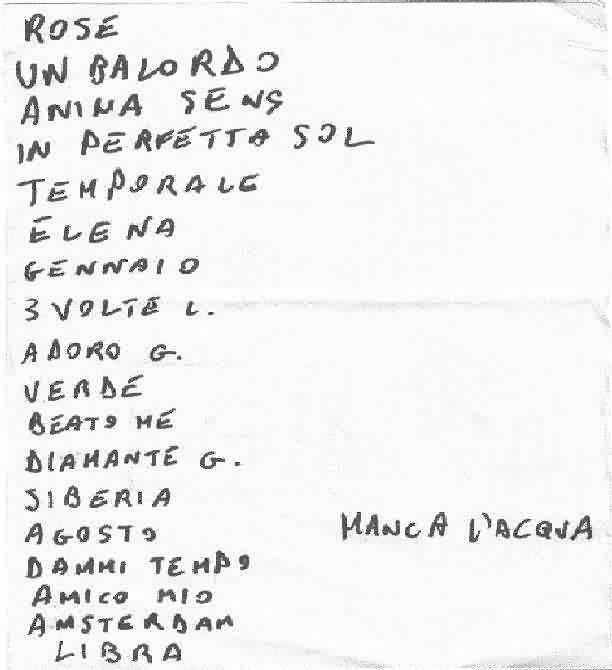 ROSE
UN BALORDO
ANIMA SENS
IN PERFETTA SOL
TEMPORALE
ELENA
GENNAIO
3 VOLTE L.
ADORO G.
VERDE
BEATO ME
DIAMANTE G.
SIBERIA
AGOSTO
MANCA L'ACQUA
DAMMI TEMPO
AMICO MIO
AMSTERDAM
LIBRA